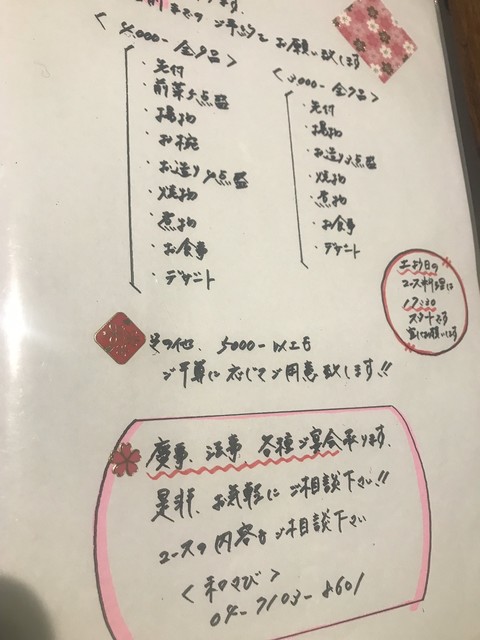 前までの ご予約を お願い致します
<4,000- 全9品>
・先付
・前菜5点盛
・揚物
・お椀
・お造り 点盛
・焼物
・煮物
・お食事
・デザート
<3,000- 全7品>
・先付
・揚物
・お造り 点盛
・焼物
・煮物
・お食事
・デザート
土よう日の
コース料理は
17:30
スタートです
お願います
その他、5000-以上も
ご予算に応じてご用意致します!!
慶事、法事、各種ご宴会承ります。
是非、お気軽にご相談下さい!!
コースの内容もご相談下さい
<和さび>
04-7103-8601